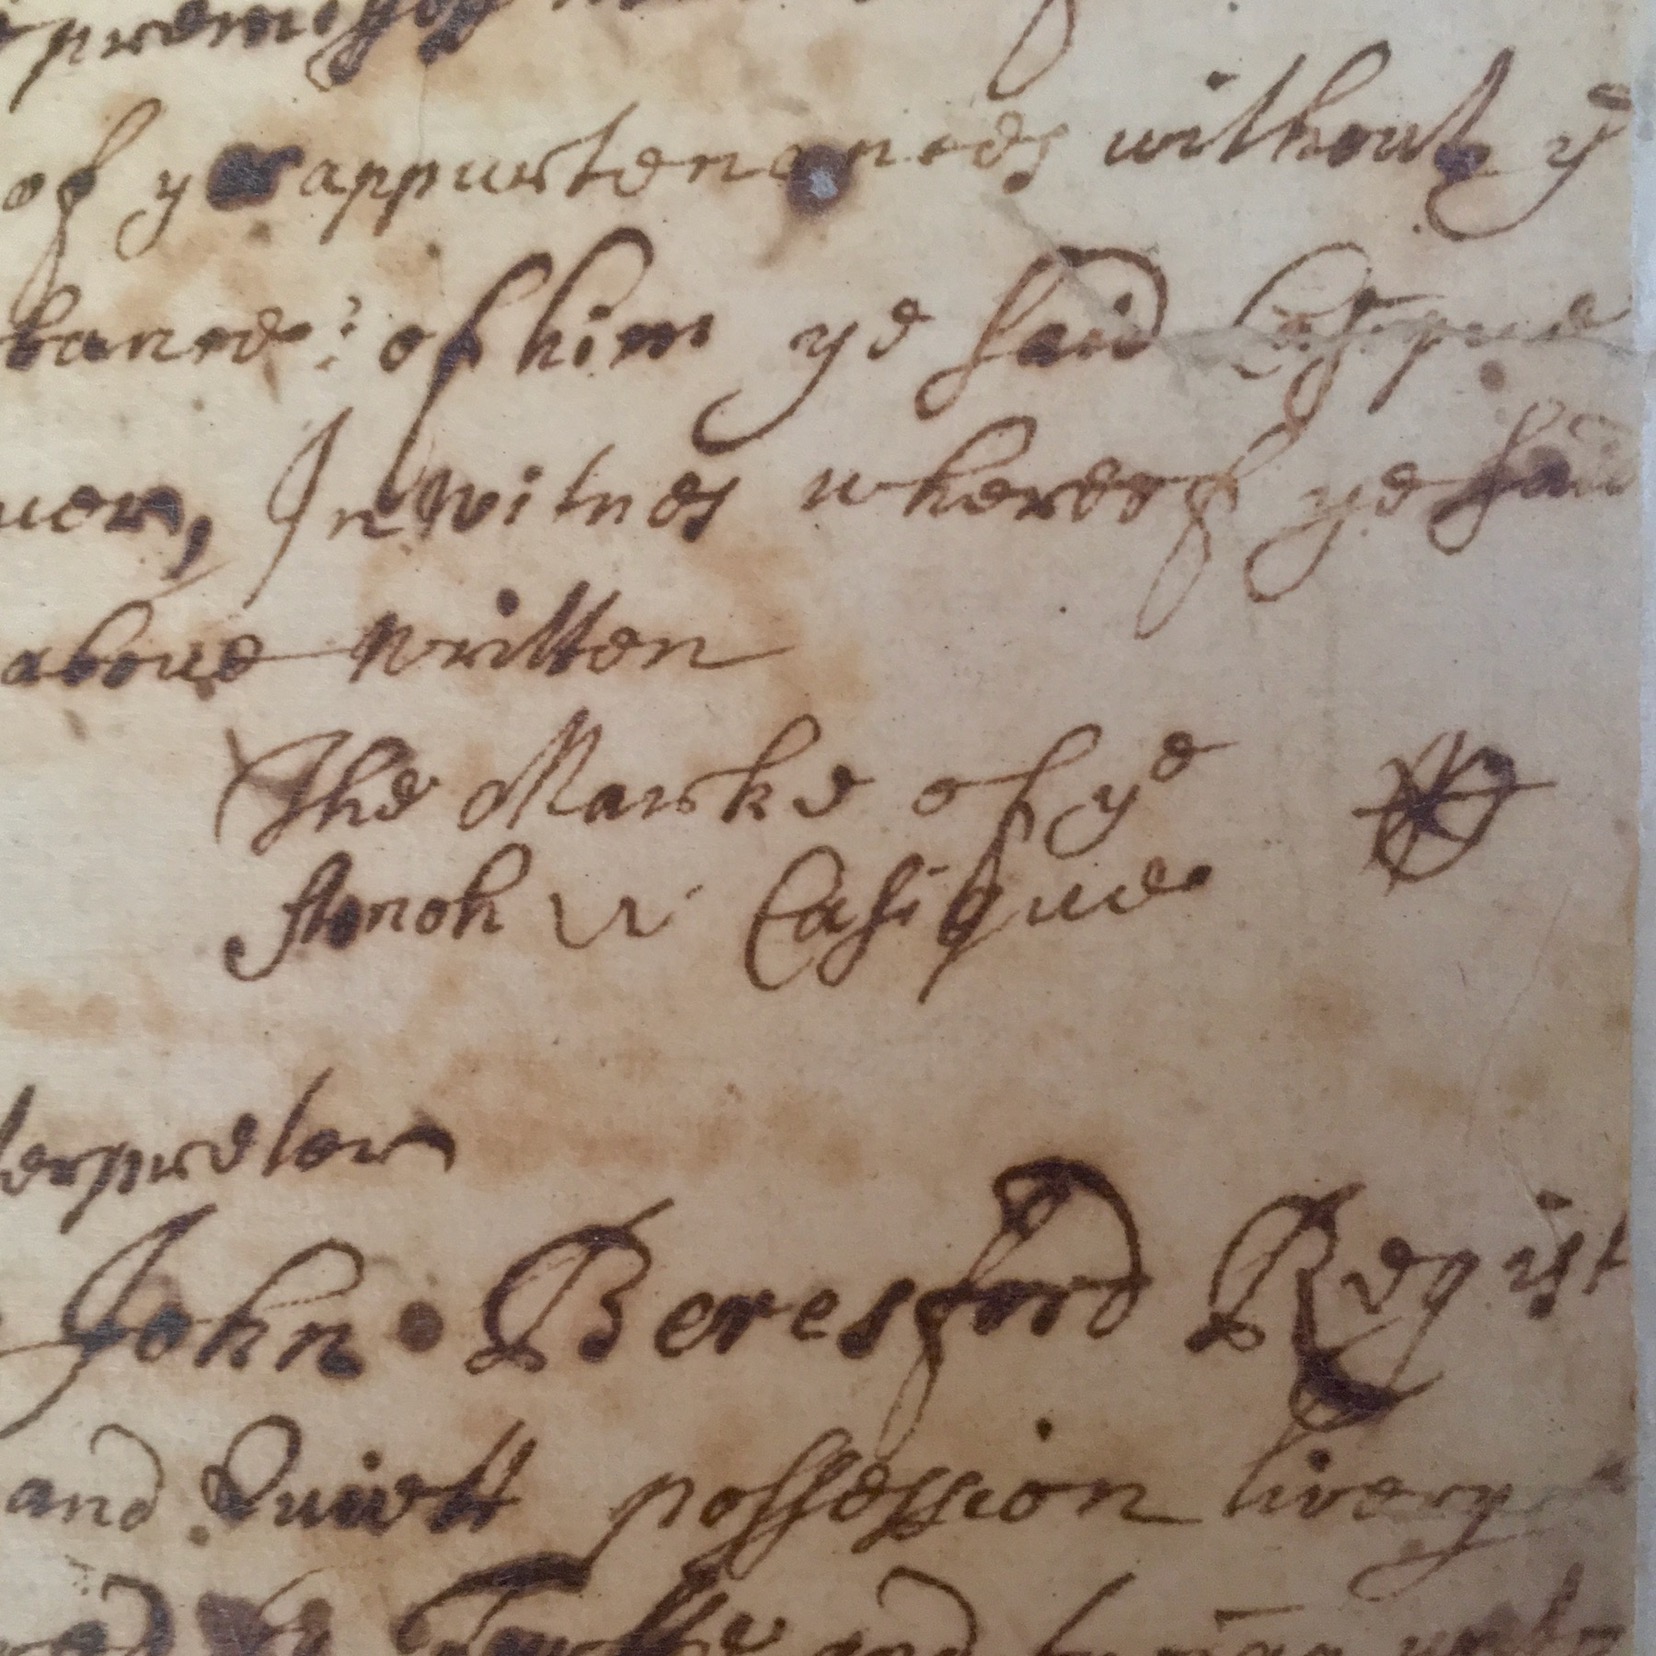 premisses
of ye appurtenances without ye
bance of him ye said Casique
ver, In witnes whereof ye said
above written
The Marke of ye
Stonoh Casique
terpreter
John Beresford Regist
and Quiett possession livery
and